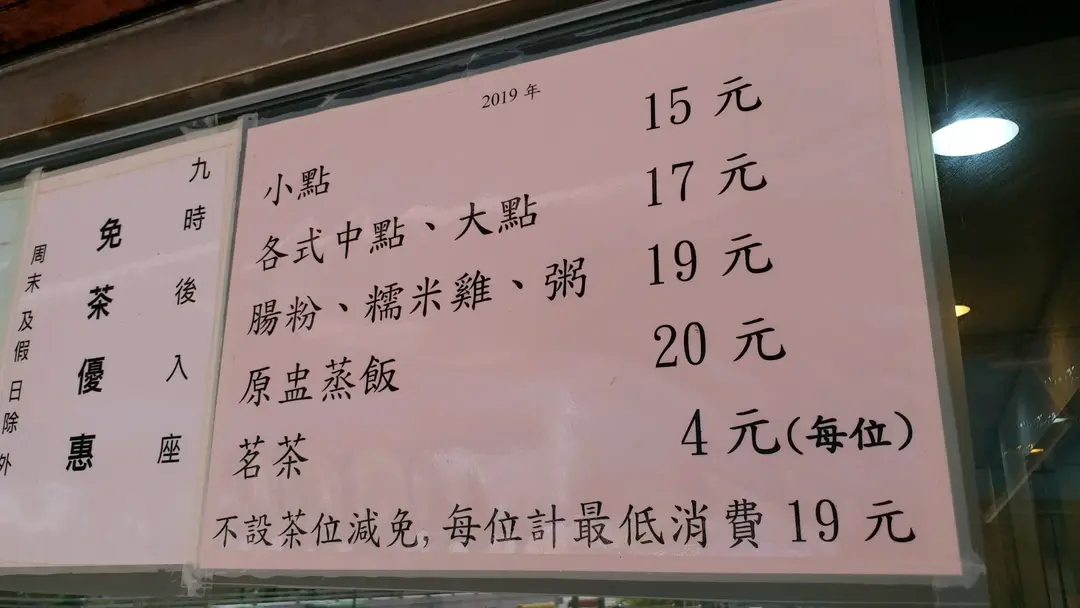 2019 年
小點 15 元
各式中點、大點 17 元
腸粉、糯米雞、粥 19 元
原盅蒸飯 20 元
茗茶 4 元(每位)
不設茶位減免, 每位計最低消費 19 元
九時後入座
免茶優惠
周末及假日除外